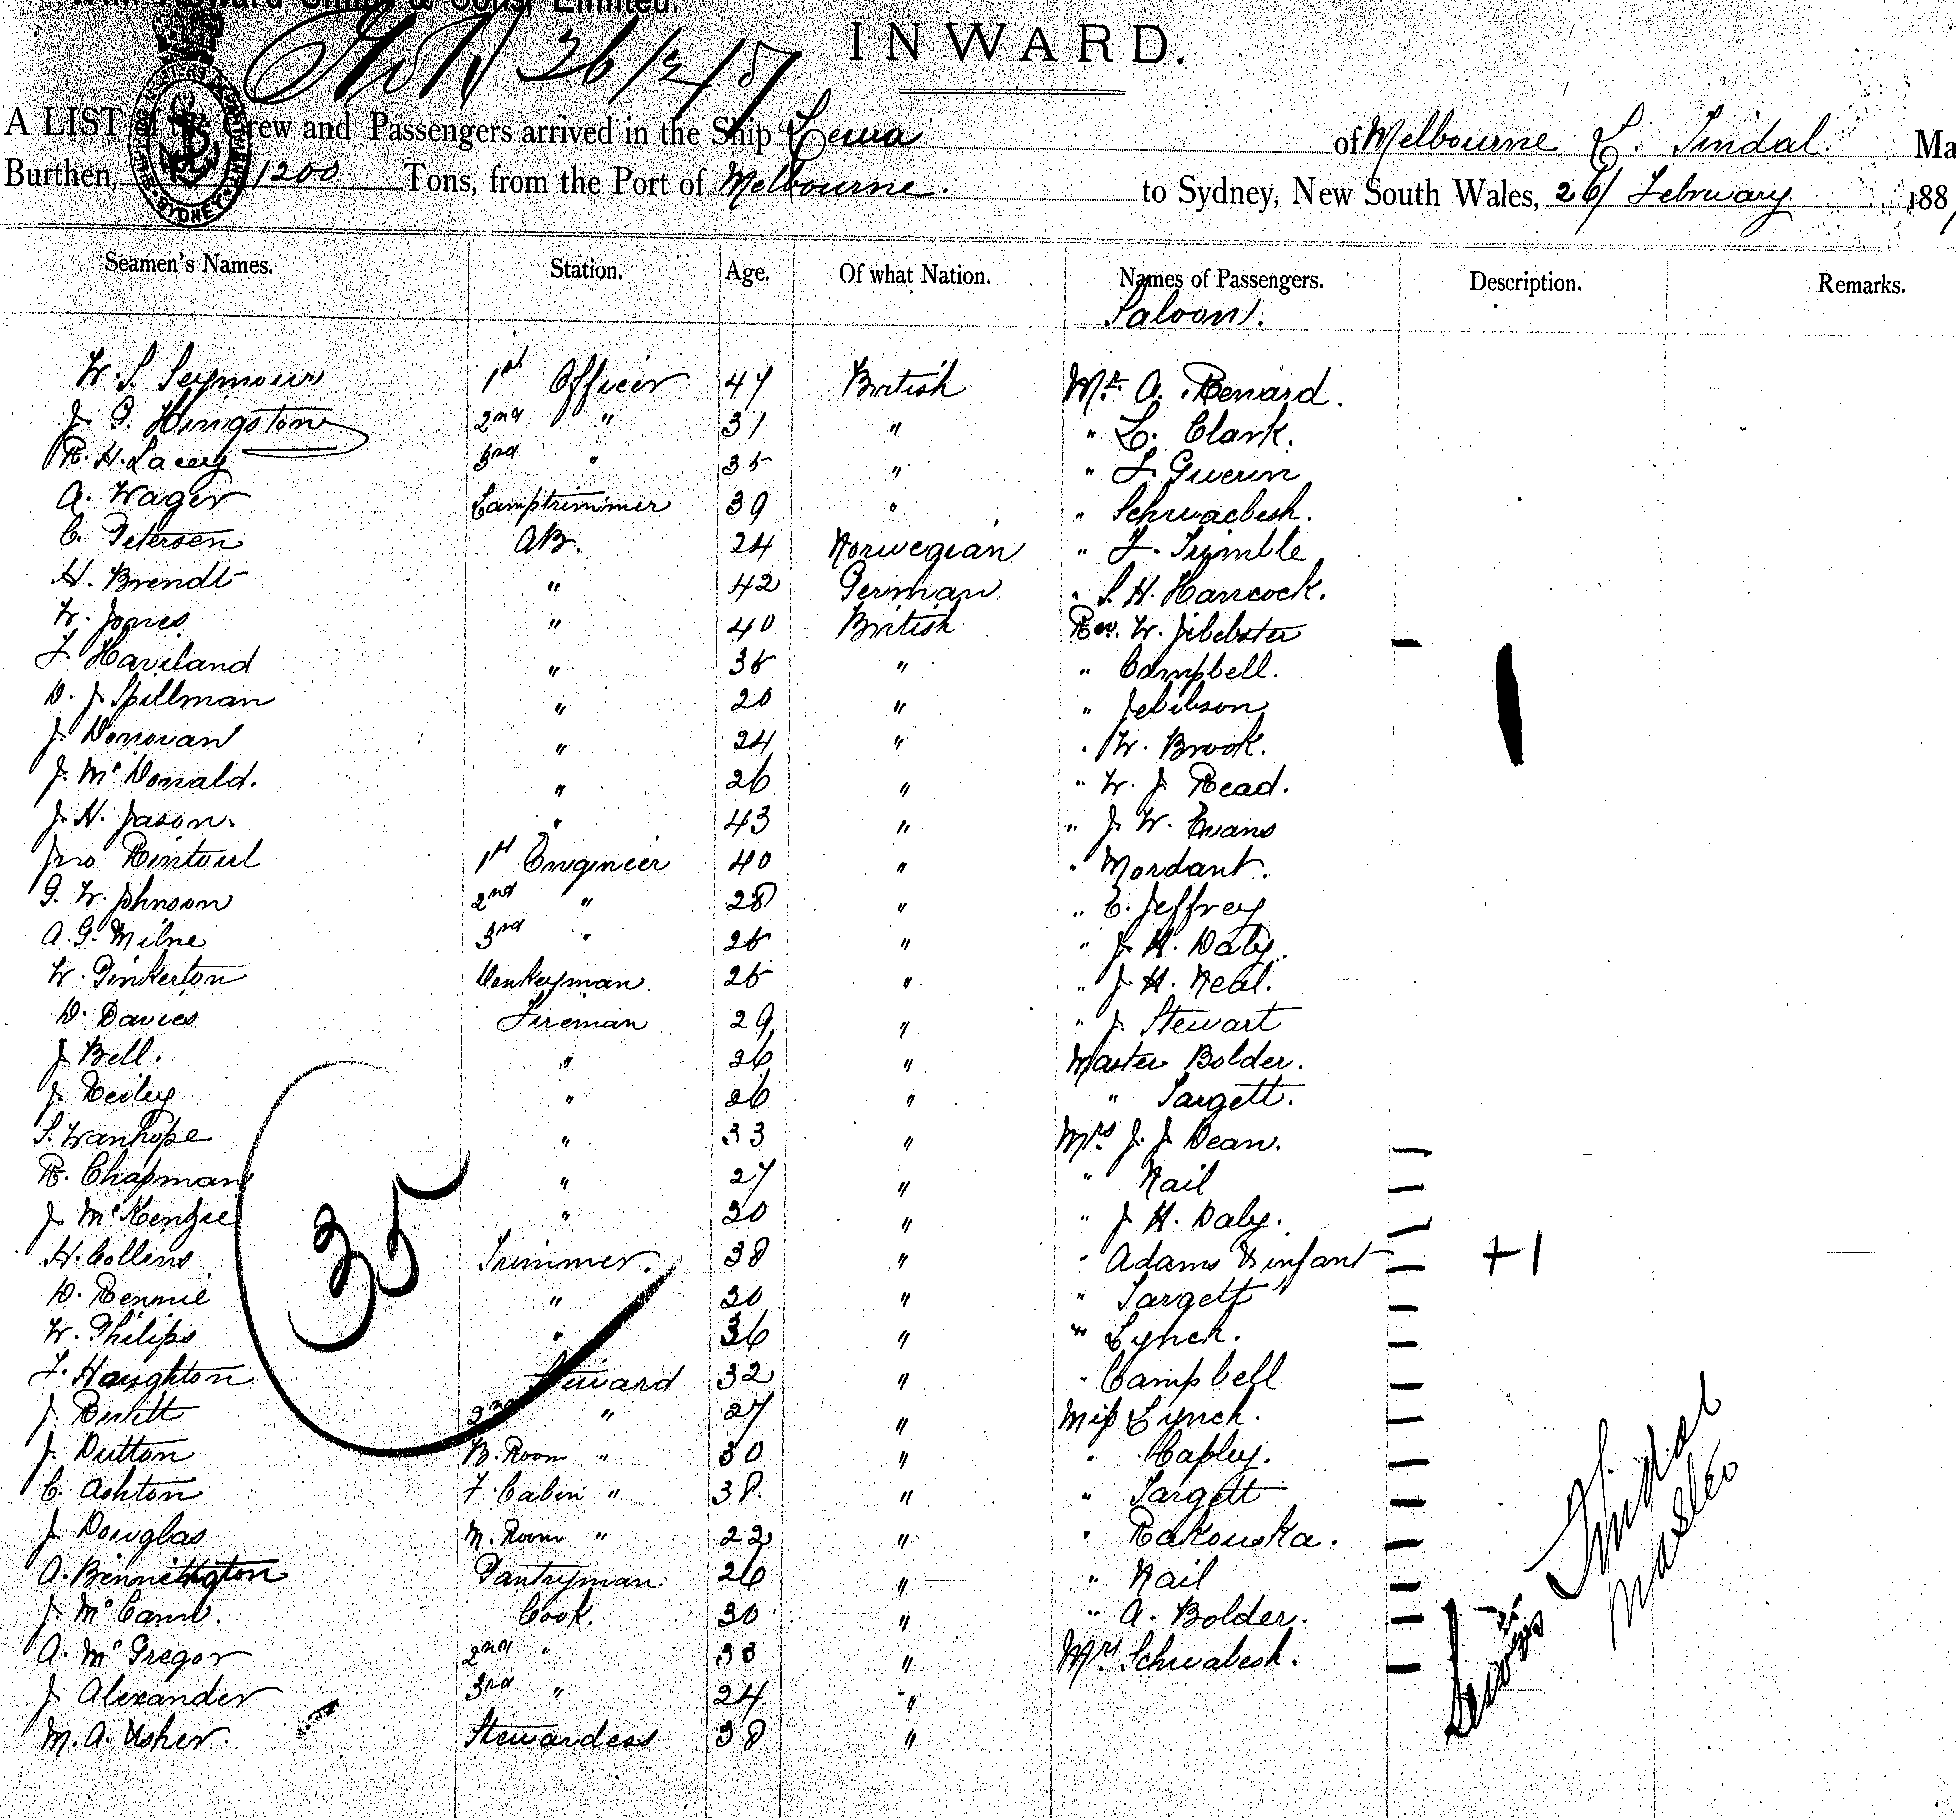 INWARD.
26/2/87
A LIST of the Crew and Passengers arrived in the Ship of Melbourne L. Tindal Ma
Burthen, 1200 Tons, from the Port of Melbourne. to Sydney, New South Wales, 26/ February 188
Seamen's Names. Station. Age. Of what Nation. Names of Passengers. Description. Remarks.
Saloon.
W. S. Seymour 1st Officer 47 British Mr. A. Renard.
J. G. Hingston 2nd " 31 " " L. Clark.
R. H. Lacey 3rd " 35 " " F. Guerin
A. Wager Lamptrimmer 39 " " Schwaebesh.
C. Petersen AB. 24 Norwegian " F. Trimble
H. Brendt " 42 German " S. H. Hancock.
W. Jones " 40 British Rev. W.
F. Haviland " 35 " " Campbell.
D. J. Spillman " 20 " "
J. Donovan " 24 " " W. Brook.
J. McDonald. " 26 " " W. J. Read.
J. H. Jason. " 43 " " J. W. Evans
Jno Rintoul 1st Engineer 40 " " Mordant.
G. W. Johnson 2nd " 28 " " E. Jeffrey
A. G. Milne 3rd " 25 " " J. H. Daly.
W. Pinkerton Donkeyman 25 " " J. H. Neal.
D. Davies Fireman 29 " " J. Stewart
J. Bell. " 26 " Master Bolder.
J. " 26 " " Targett.
S. Wanhope " 33 " Mrs J. J. Dean.
R. Chapman " 27 " " Nail
J. McKenzie " 30 " " J. H. Daly.
H. Collins Trimmer. 38 " " Adams & infant +1
D. Rennie " 30 " " Targett
W. Philips " 36 " " Lynch.
F. Haughton Steward 32 " " Campbell
J. 2nd " 27 " Miss Lynch.
J. Dutton B. Room " 30 " " Capley.
C. Ashton F. Cabin " 38 " " Targett
J. Douglas M. Room " 22 " " Rakouska.
A. Bennington Pantryman 26 " " Nail
J. McCann. Cook. 30 " " A. Bolder.
A. McGregor 2nd " 33 " Mrs Schwabesh.
J. Alexander 3rd " 24 "
M. A. Usher. Stewardess 38 "
35
Lewis Tindal
Master